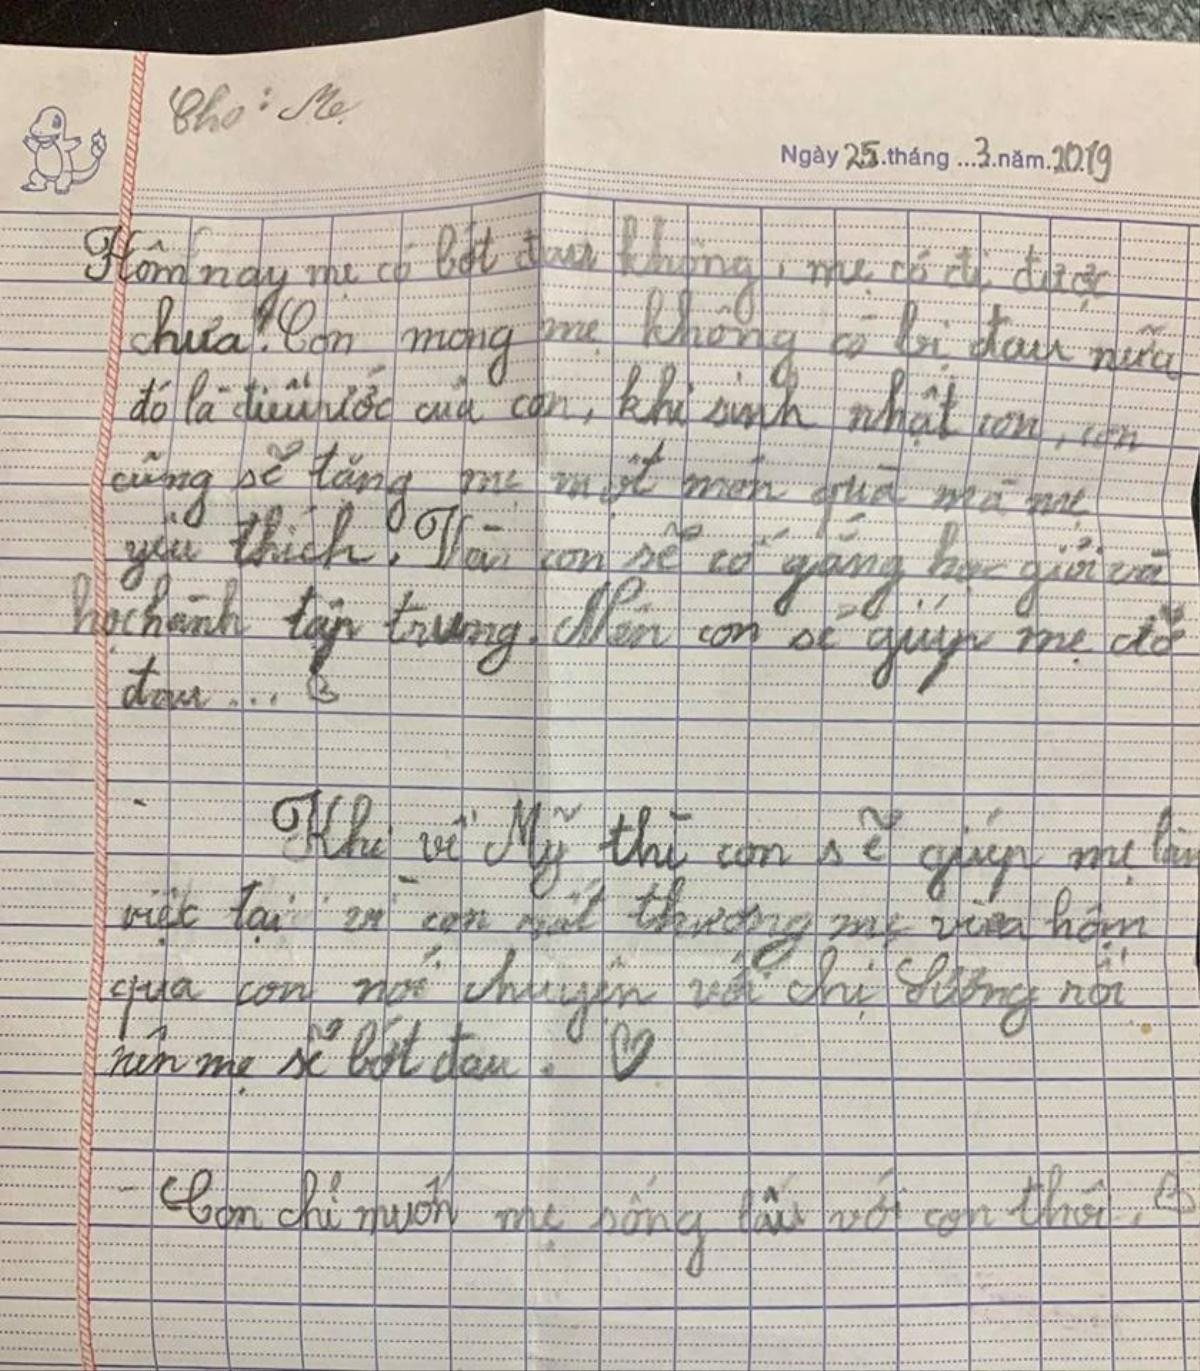 Cho: Mẹ
Ngày 25.tháng ...3.năm.2019
Hôm nay mẹ có bớt đau không, mẹ có đi được
chưa? Con mong mẹ không có bị đau nữa
đó là điều ước của con, khi sinh nhật con, con
cũng sẽ tặng mẹ một món quà mà mẹ
yêu thích. Và con sẽ cố gắng học giỏi và
học hành tập trung. Nên con sẽ giúp mẹ đỡ
đau ...
Khi về Mỹ thì con sẽ giúp mẹ làm
việc tại vì con rất thương mẹ vừa hôm
qua con nói chuyện với chị Sương rồi
nên mẹ sẽ bớt đau. ♡
- Con chỉ muốn mẹ sống lâu với con thôi.